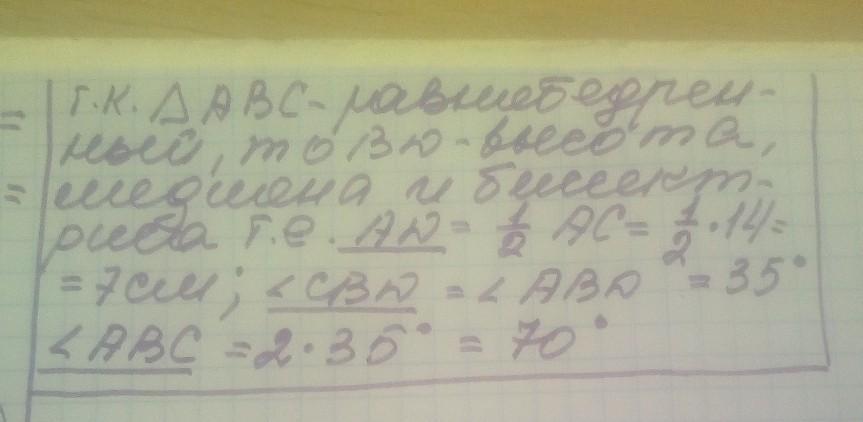 т.к. △ABC - равнобедрен-
ный, то BD - высота,
медиана и биссект-
риса т.е. AD = 1/2 AC = 1/2 · 14 =
= 7 см; ∠CBD = ∠ABD = 35°
∠ABC = 2 · 35° = 70°